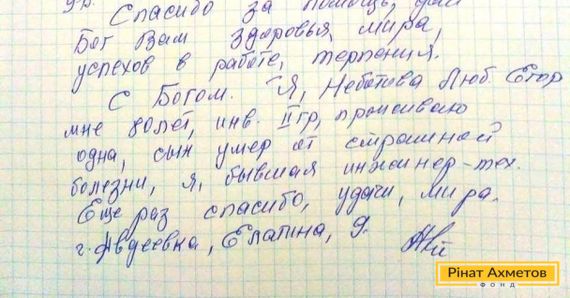 Спасибо за помощь, дай
Бог Вам здоровья, мира,
успехов в работе, терпения.
С Богом. Я, Неботова Люб Егор
мне 80лет, инв. II гр, проживаю
одна, сын умер от страшной
болезни, я, бывшая инженер-тех.
Еще раз спасибо, удачи, мира.
г. Авдеевка, Епатина, 9.
Рінат Ахметов
ФОНД